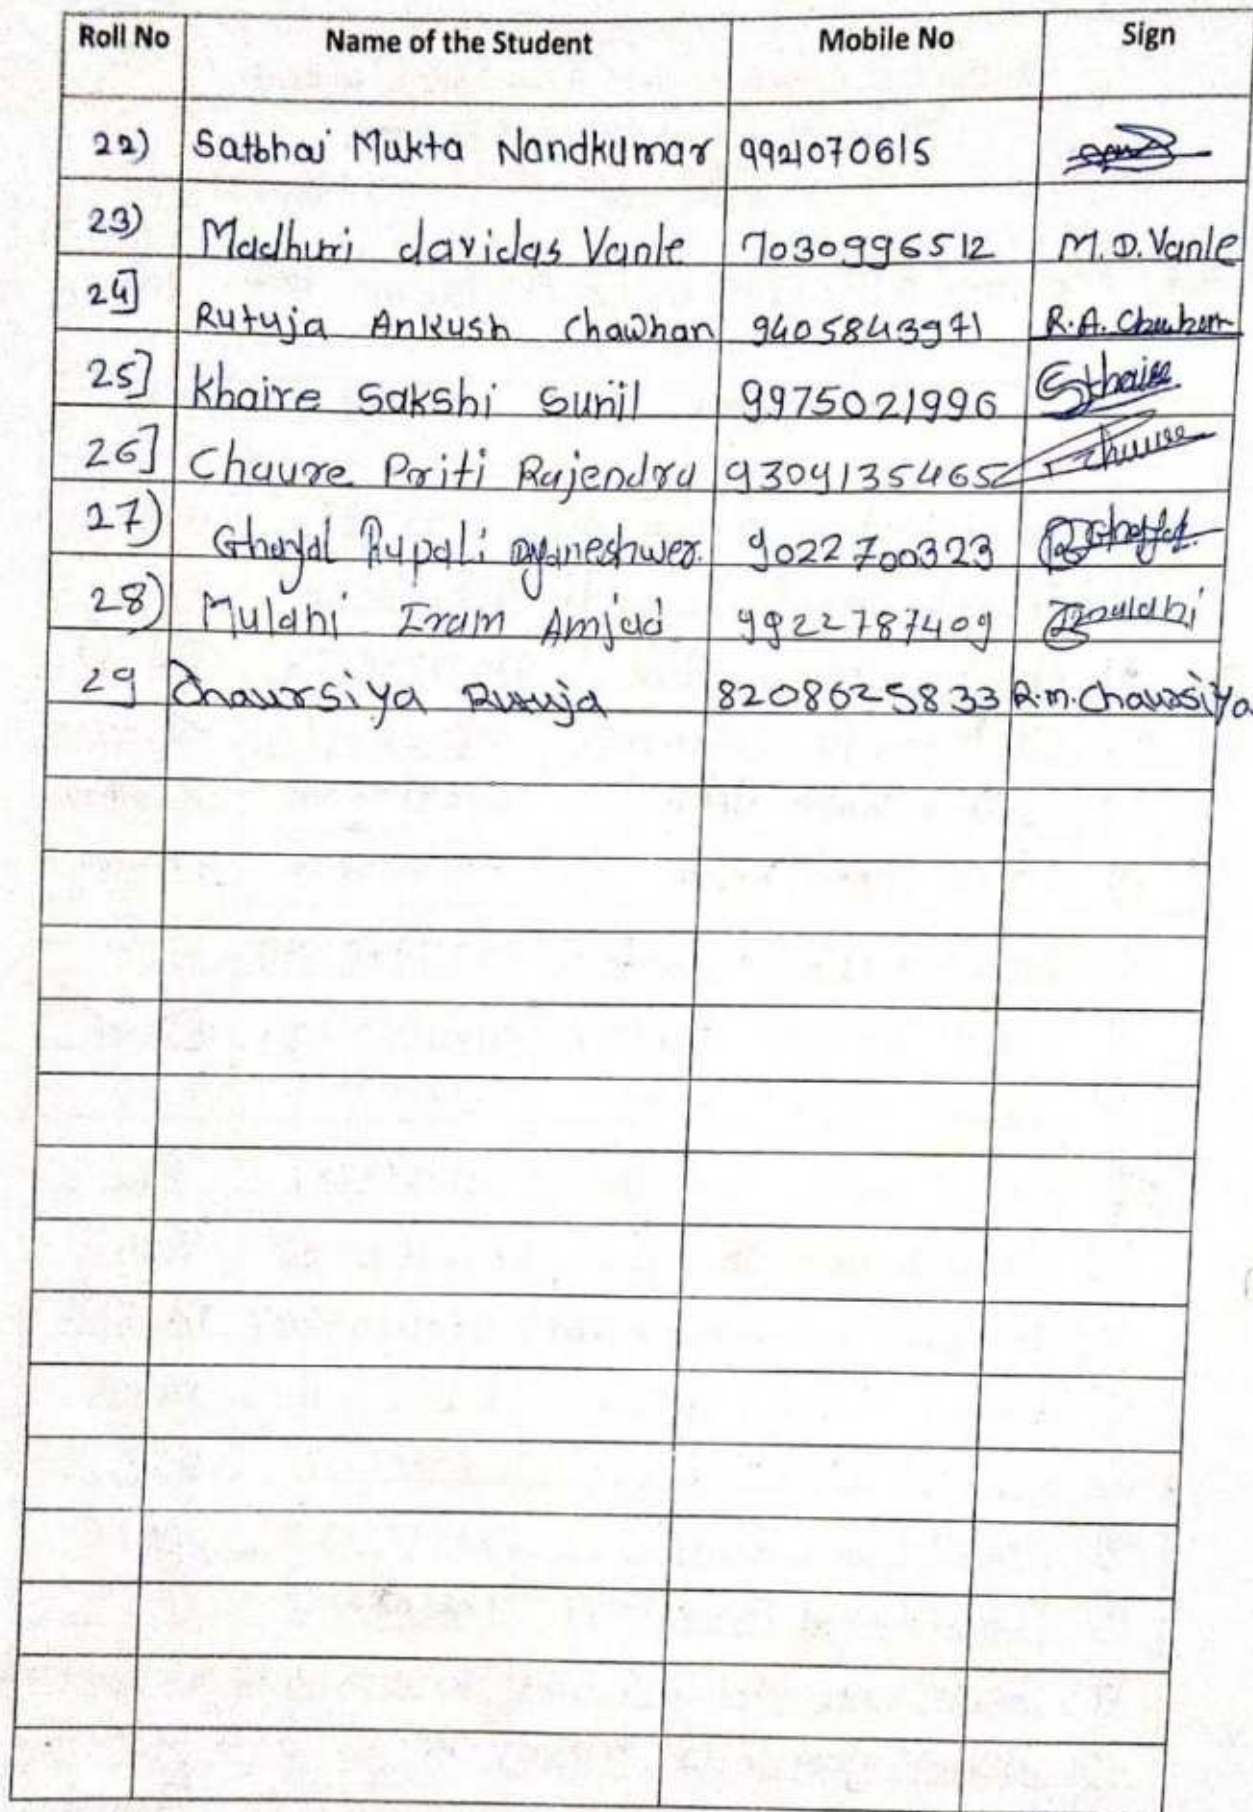 Roll No Name of the Student Mobile No Sign
22) Satbhai Mukta Nandkumar 9921070615
23) Madhuri davidas Vanle 7030996512 M.D. Vanle
24] Rutuja Ankush Chawhan 9405843971 R.A. Chauhan
25] Khaire Sakshi Sunil 9975021996 Skhaire
26] Chaure Priti Rajendra 9309135465 Chaure
27) Ghayal Rupali dyaneshwer. 9022700323
28) Mulani Iram Amjad 9922787409
29 Chaursiya Rutuja 8208625833 R.m. Chaursiya